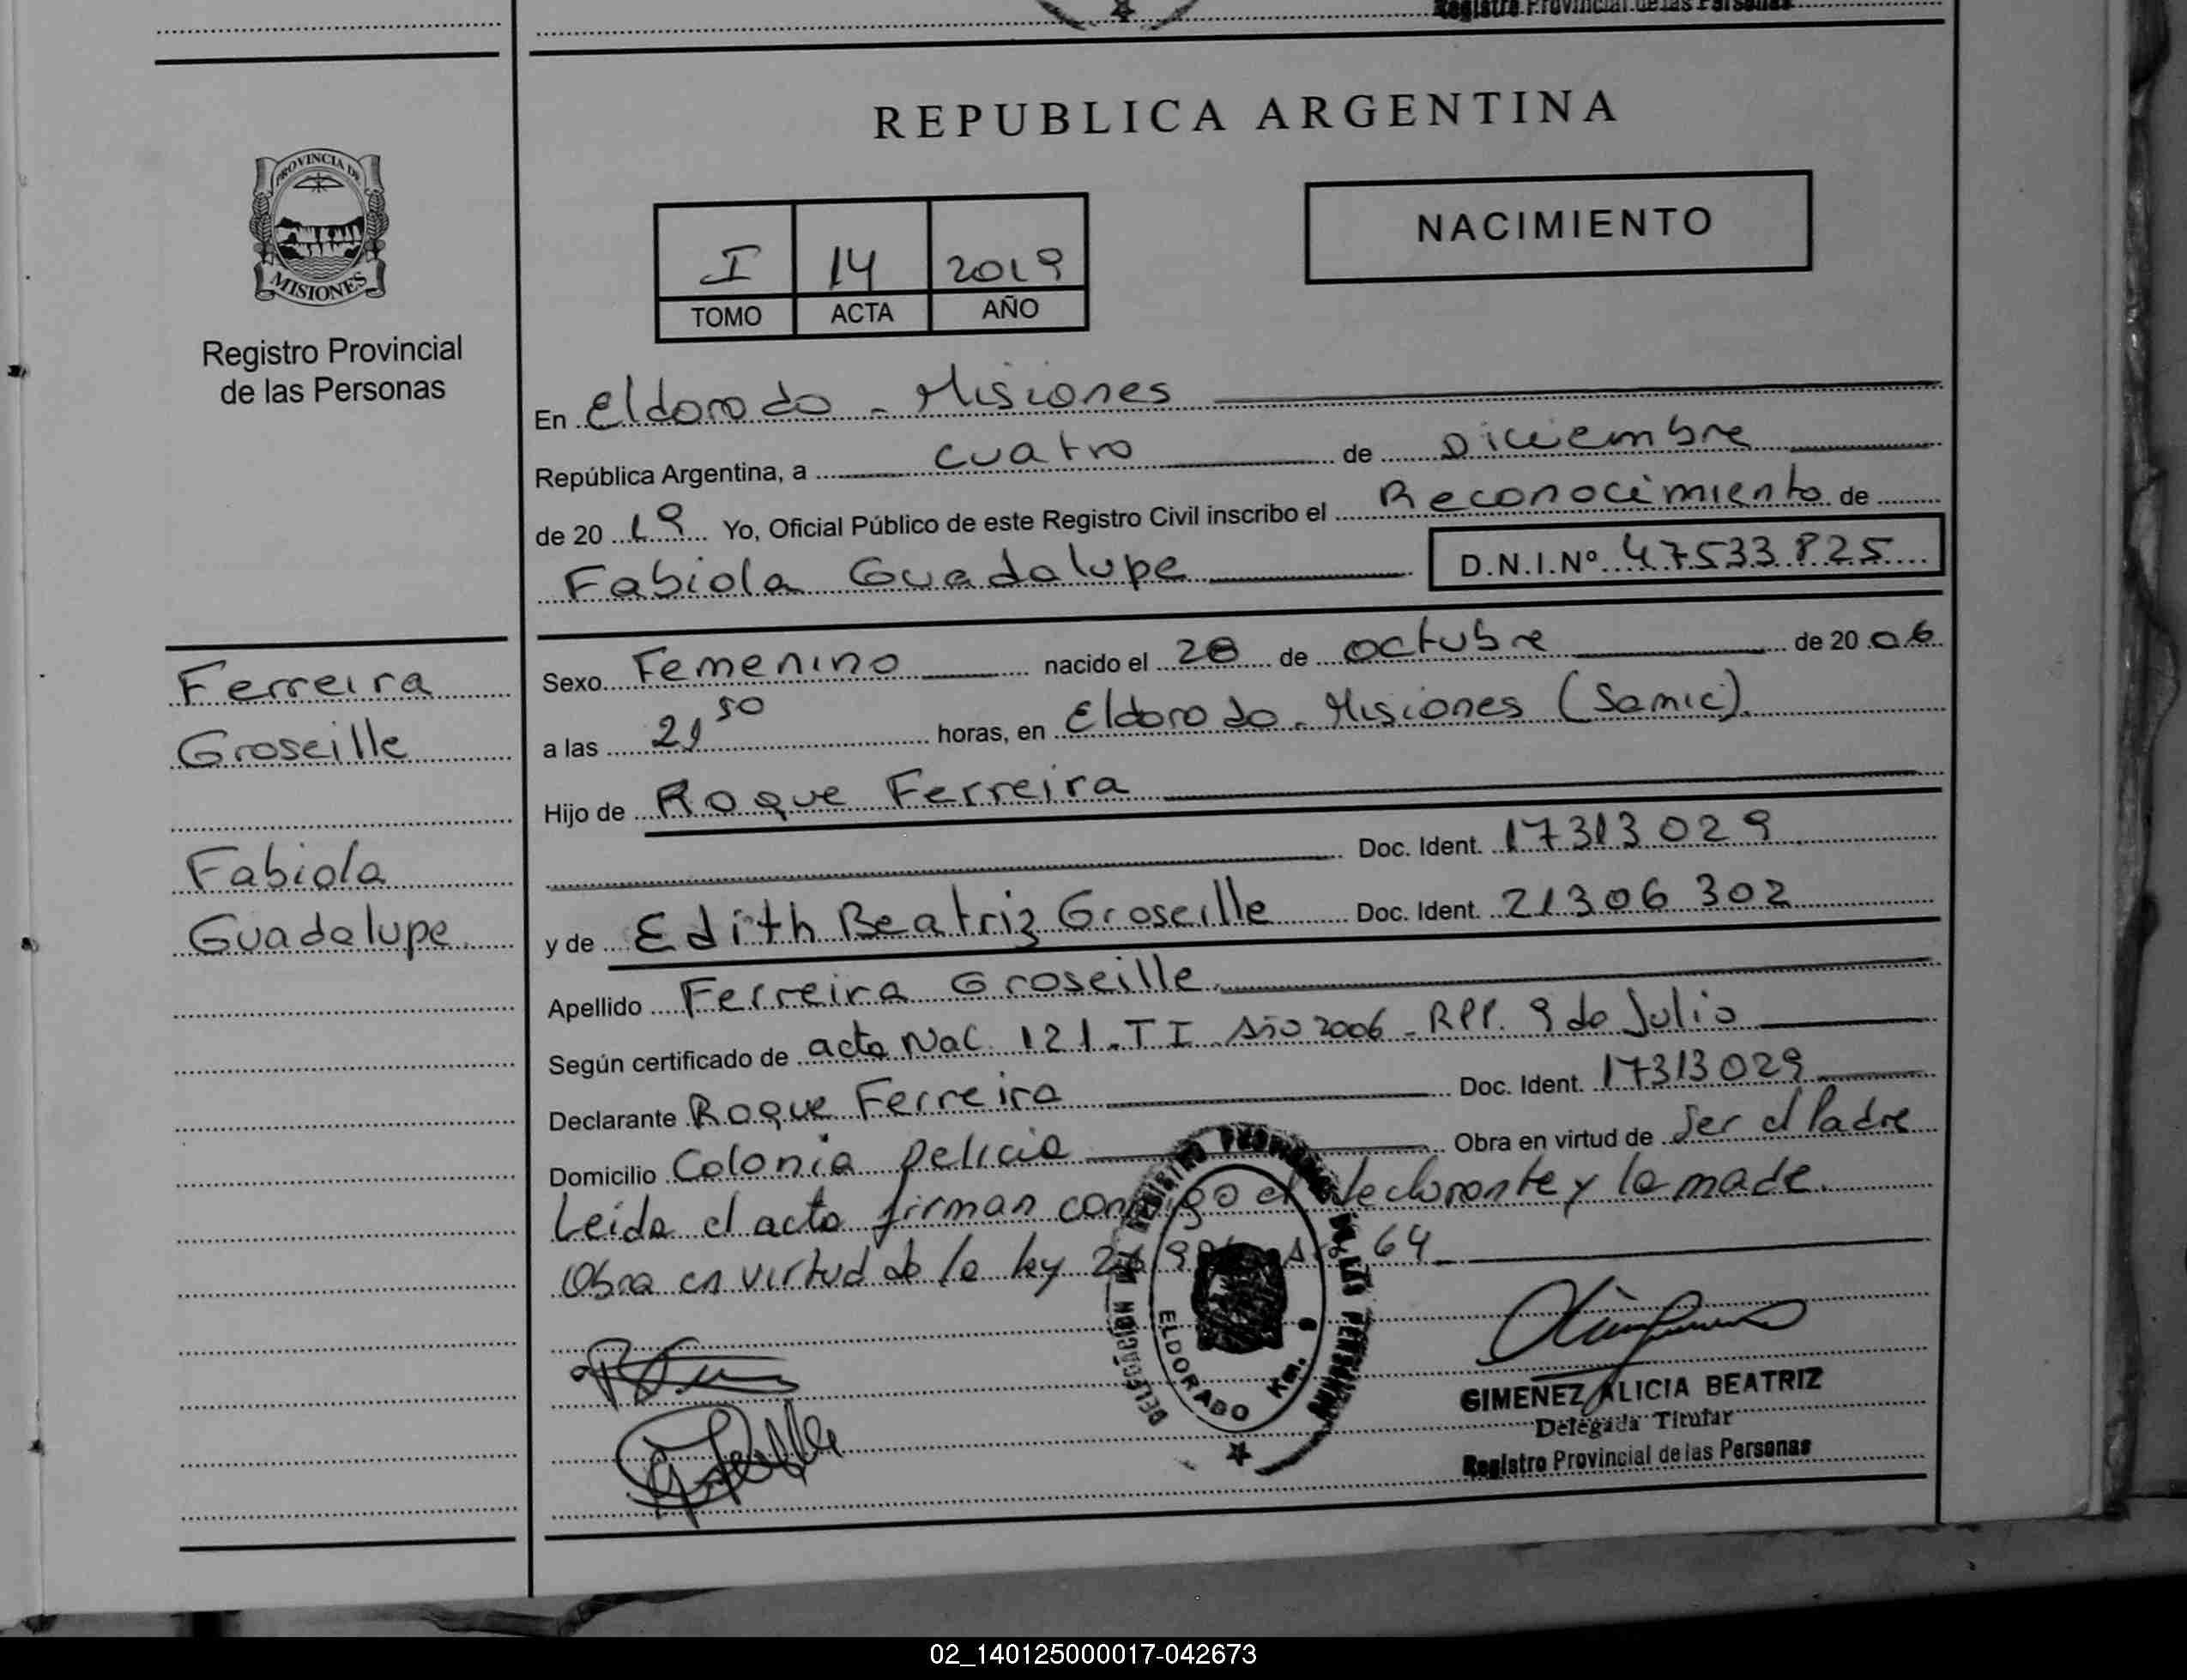 Registro Provincial de las Personas
REPUBLICA ARGENTINA
PROVINCIA DE
MISIONES
Registro Provincial
de las Personas
NACIMIENTO
I 14 2019
TOMO ACTA AÑO
En Eldorado - Misiones
República Argentina, a cuatro de Diciembre
de 20 19 Yo, Oficial Público de este Registro Civil inscribo el Reconocimiento de
Fabiola Guadalupe D.N.I.Nº 47533825
Ferreira
Groseille
Fabiola
Guadalupe
Sexo Femenino nacido el 28 de octubre de 20 06
a las 21 50 horas, en Eldorado - Misiones (Samic).
Hijo de Roque Ferreira
Doc. Ident. 17313029
y de Edith Beatriz Groseille Doc. Ident. 21306302
Apellido Ferreira Groseille
Según certificado de acta Nac 121 - T I - Año 2006 - RPP. 9 de Julio
Declarante Roque Ferreira Doc. Ident. 17313029
Domicilio Colonia Delicia Obra en virtud de Ser el Padre
Leida el acta firman conmigo el declarante y la made.
Obra en virtud de la ley 64
DELEGACION REGISTRO PROVINCIAL DE LAS PERSONAS
ELDORADO Km. 9
GIMENEZ ALICIA BEATRIZ
Delegada Titular
Registro Provincial de las Personas
02_140125000017-042673